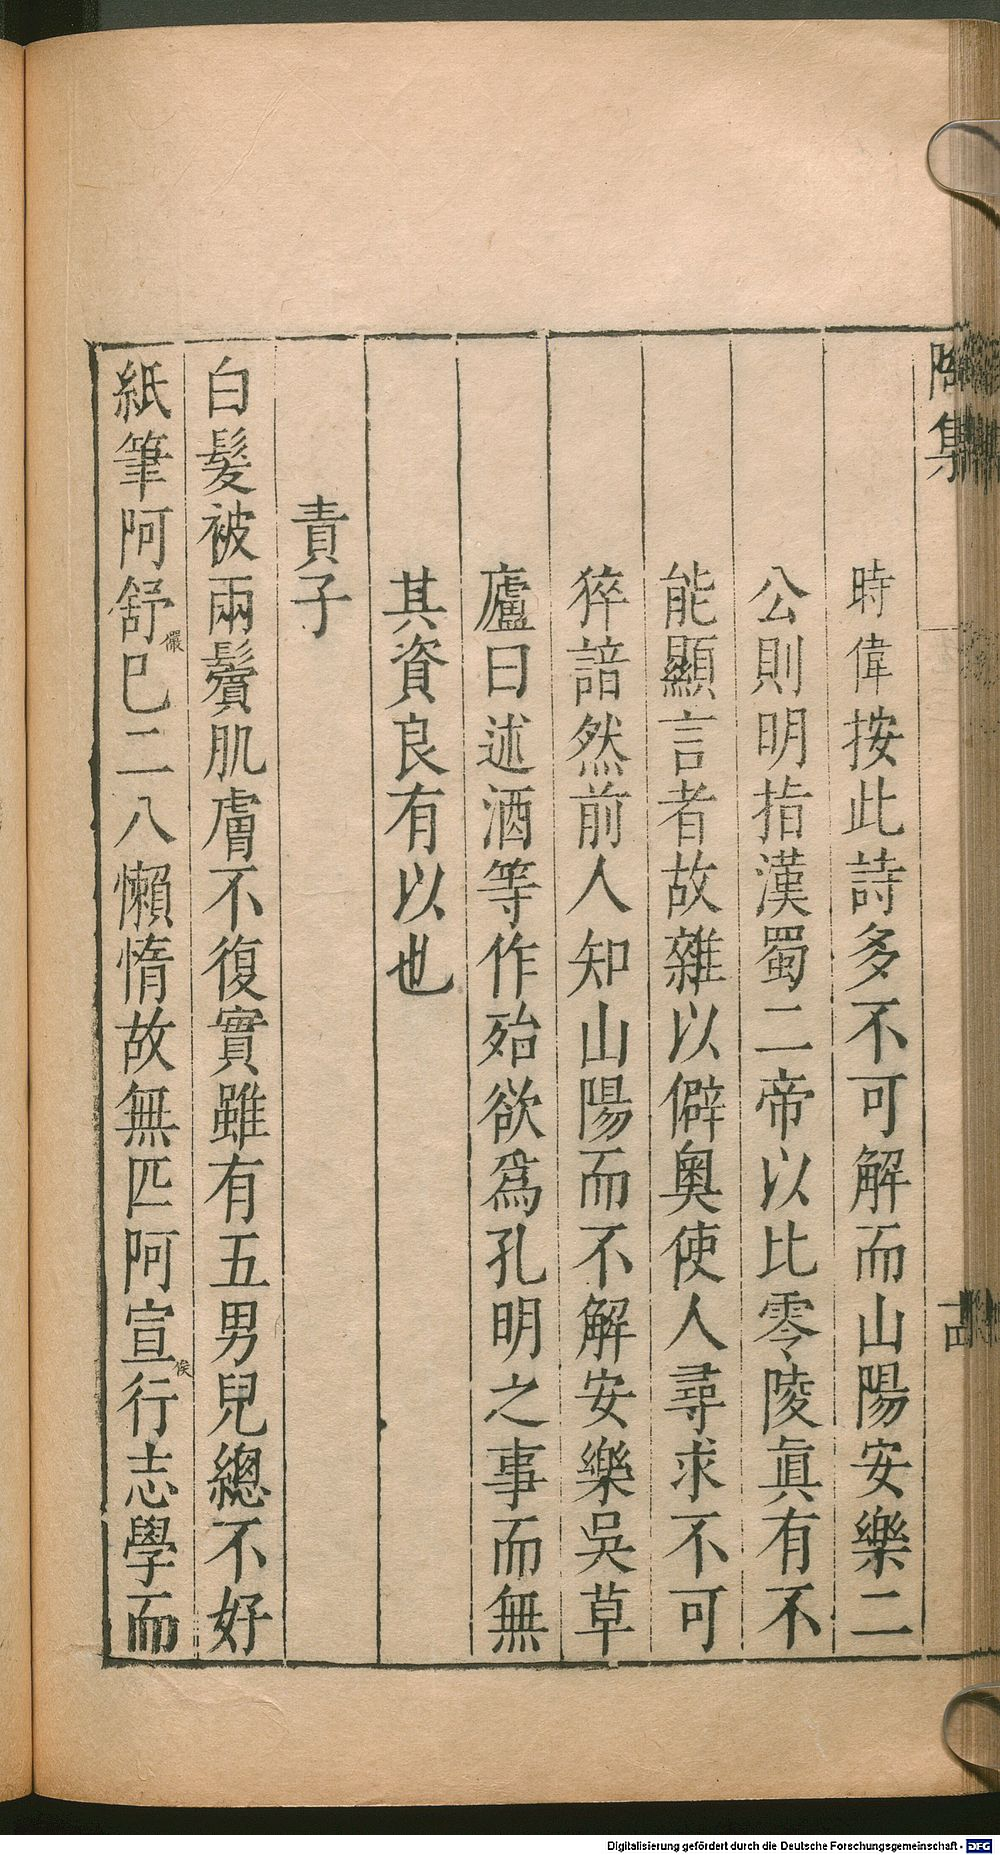 陶集
十四
時偉按此詩多不可解而山陽安樂二
公則明指漢蜀二帝以比零陵眞有不
能顯言者故雜以僻奧使人尋求不可
猝諳然前人知山陽而不解安樂吳草
廬曰述酒等作殆欲爲孔明之事而無
其資良有以也
責子
白髮被兩鬢肌膚不復實雖有五男兒總不好
紙筆阿舒儼巳二八懶惰故無匹阿宣俟行志學而
Digitalisierung gefördert durch die Deutsche Forschungsgemeinschaft - DFG